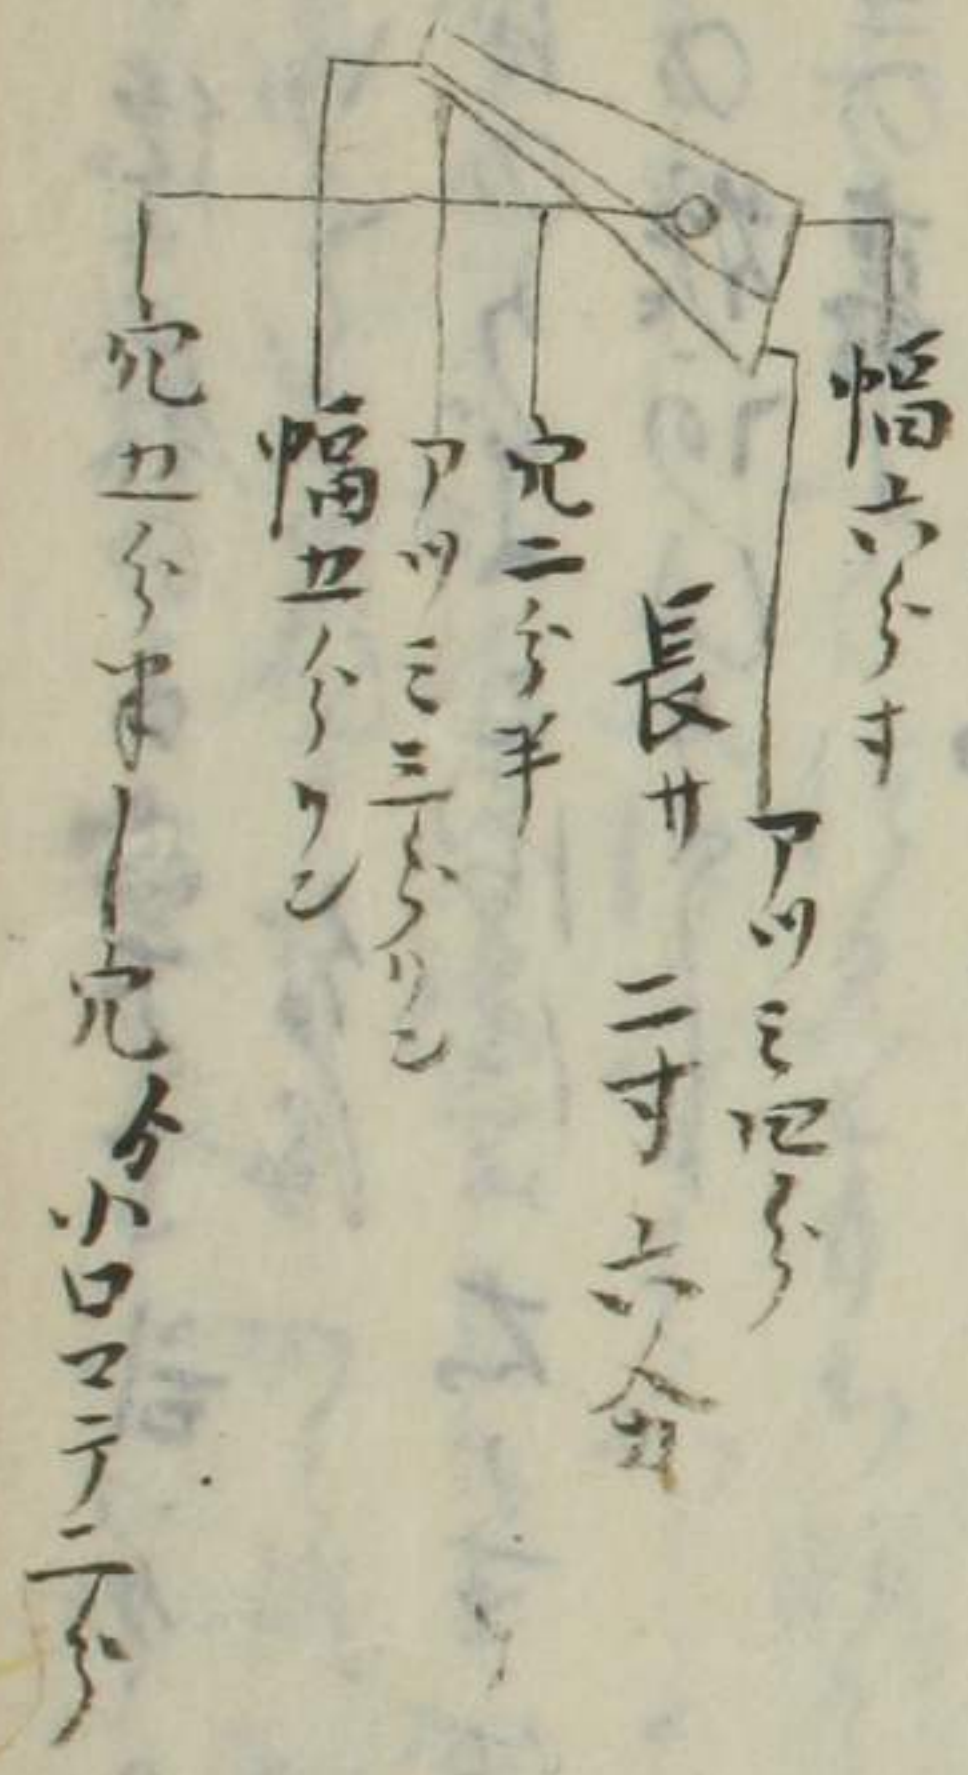 幅六分寸
アツミ四分
長サ 二寸六分
穴二分半
アツミ三分ハン
幅五分ハン
穴五分半 穴分小口マテ二分